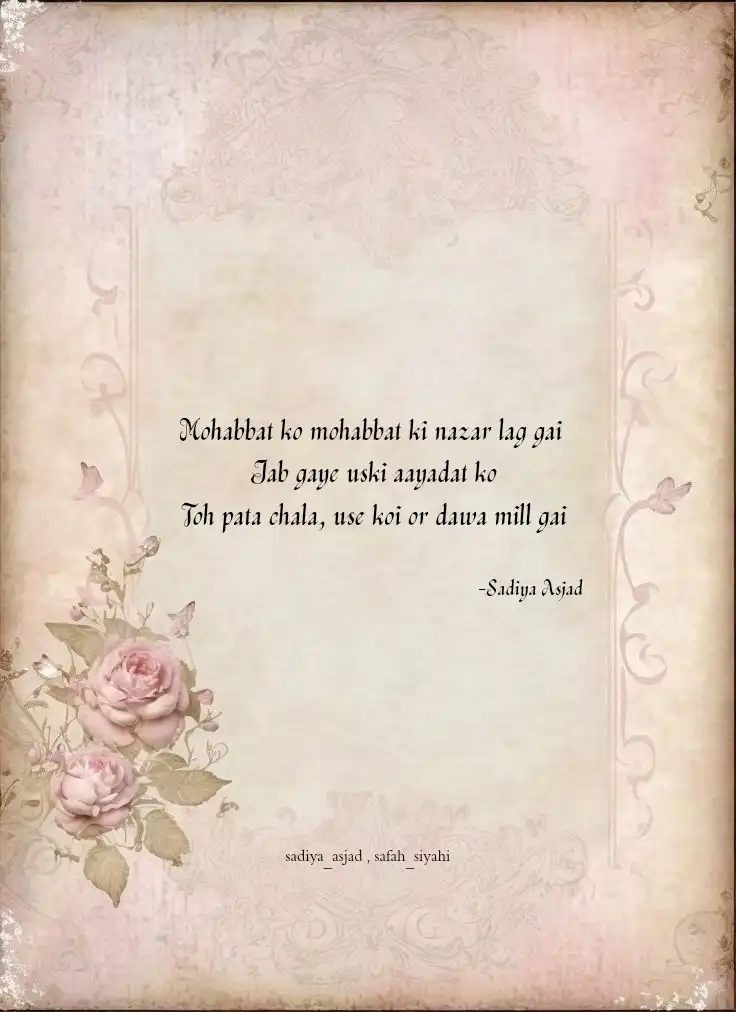 Mohabbat ko mohabbat ki nazar lag gai
Jab gaye uski aayadat ko
Toh pata chala, use koi or dawa mill gai
-Sadiya Asjad
sadiya_asjad , safah_siyahi